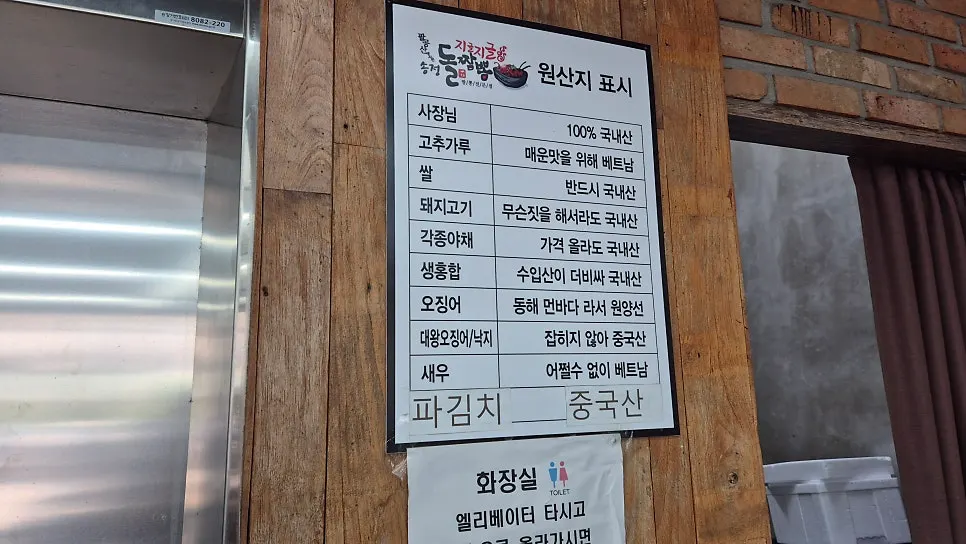 8082-220
팔공산
송정
지글지글
돌짜빰
원산지 표시
사장님 100% 국내산
고추가루 매운맛을 위해 베트남
쌀 반드시 국내산
돼지고기 무슨짓을 해서라도 국내산
각종야채 가격 올라도 국내산
생홍합 수입산이 더비싸 국내산
오징어 동해 먼바다 라서 원양선
대왕오징어/낙지 잡히지 않아 중국산
새우 어쩔수 없이 베트남
파김치 중국산
화장실
TOILET
엘리베이터 타시고
올라가시면